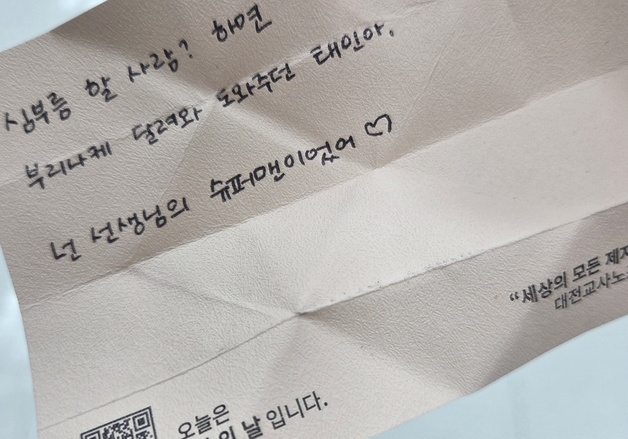 심부름 할 사람? 하면
부리나케 달려와 도와주던 태인아,
넌 선생님의 슈퍼맨이었어♡
“세상의 모든 제자
대전교사노
오늘은
의 날 입니다.